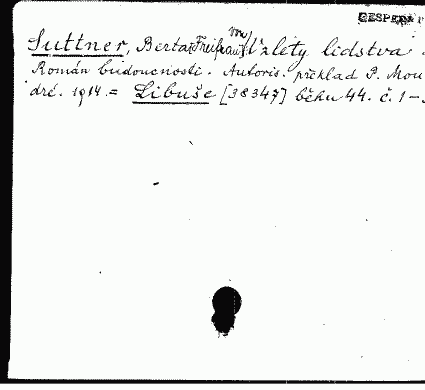 Suttner, Berta, Freifrau v. Vzlety lidstva.
Román budoucnosti. Autoris. překlad P. Mou
dré. 1914 = Libuše [38347] běhu 44. č. 1–